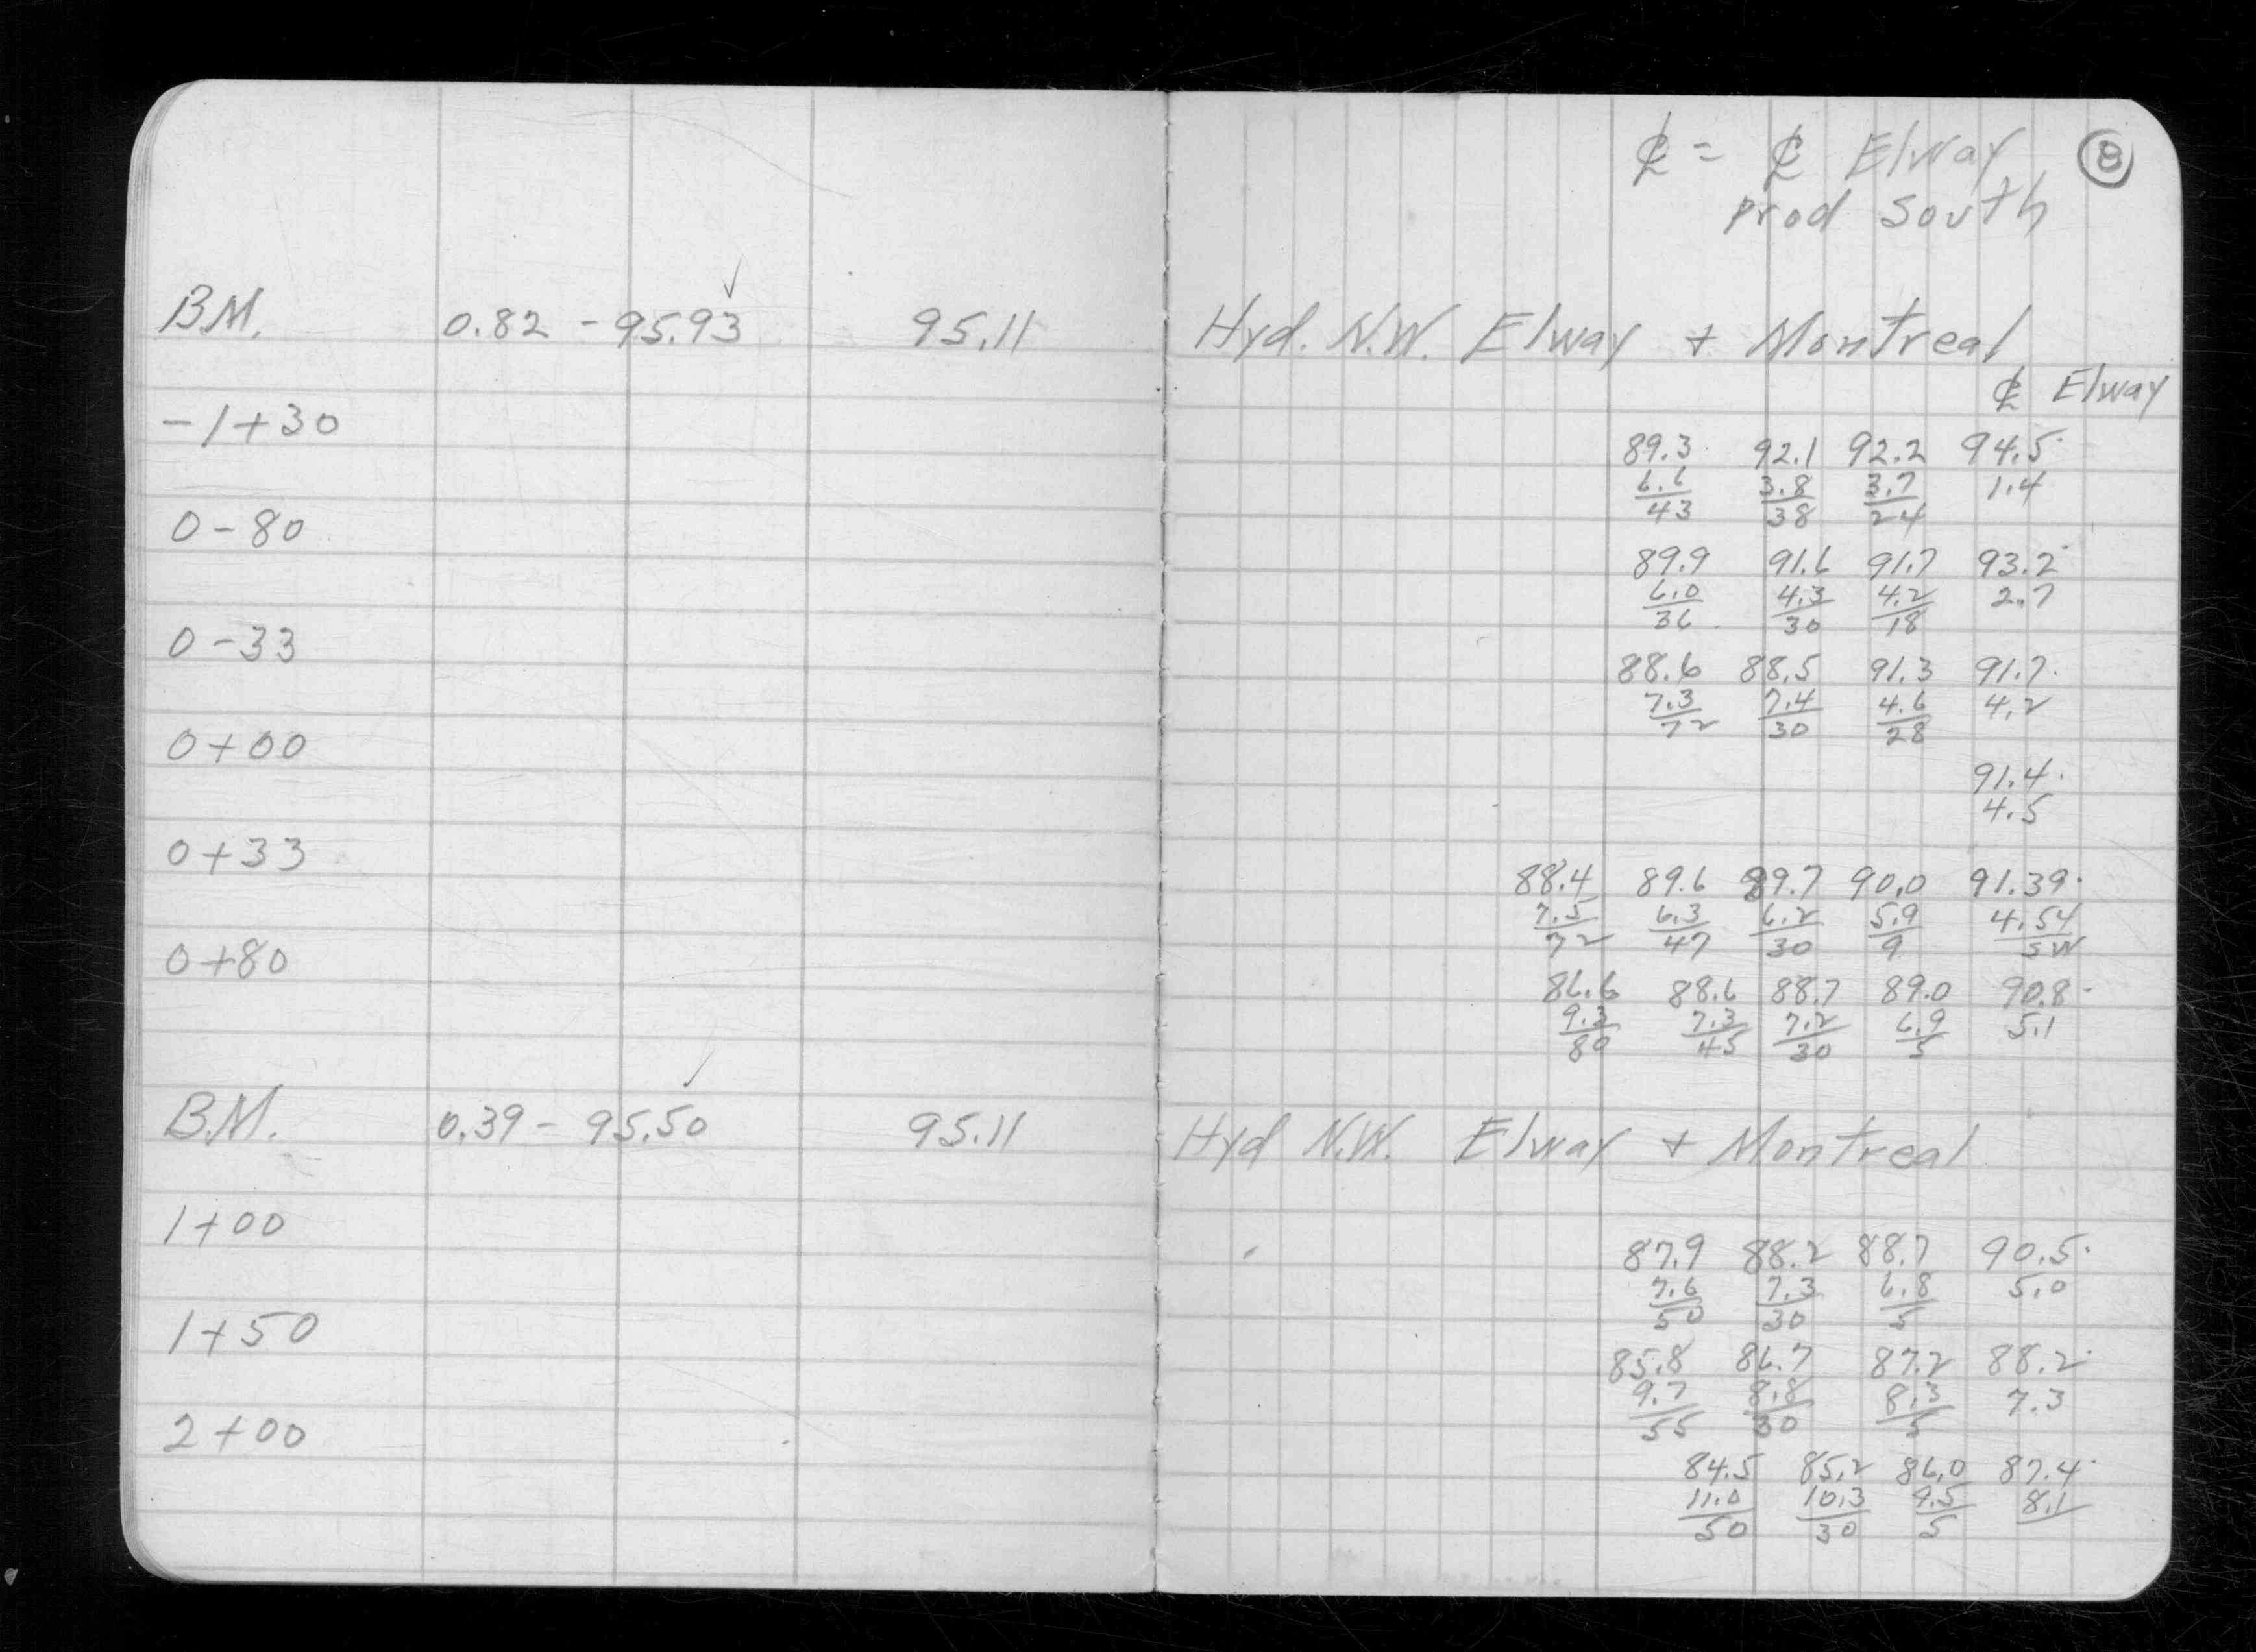 ℄ = ℄ Elway 8
prod South
B.M. 0.82 - 95.93 ✓ 95.11 Hyd. N.W. Elway + Montreal
℄ Elway
-1+30
89.3 92.1 92.2 94.5
6.6 3.8 3.7 1.4
43 38 24
0-80
89.9 91.6 91.7 93.2
6.0 4.3 4.2 2.7
36 30 18
0-33
88.6 88.5 91.3 91.7
7.3 7.4 4.6 4.2
72 30 28
0+00
91.4
4.5
0+33
88.4 89.6 89.7 90.0 91.39
7.5 6.3 6.2 5.9 4.54
72 47 30 9 SW
0+80
86.6 88.6 88.7 89.0 90.8
9.3 7.3 7.2 6.9 5.1
80 45 30 5
B.M. 0.39 - 95.50 ✓ 95.11 Hyd N.W. Elway + Montreal
1+00
87.9 88.2 88.7 90.5
7.6 7.3 6.8 5.0
50 30 5
1+50
85.8 86.7 87.2 88.2
9.7 8.8 8.3 7.3
55 30 5
2+00
84.5 85.2 86.0 87.4
11.0 10.3 9.5 8.1
50 30 5